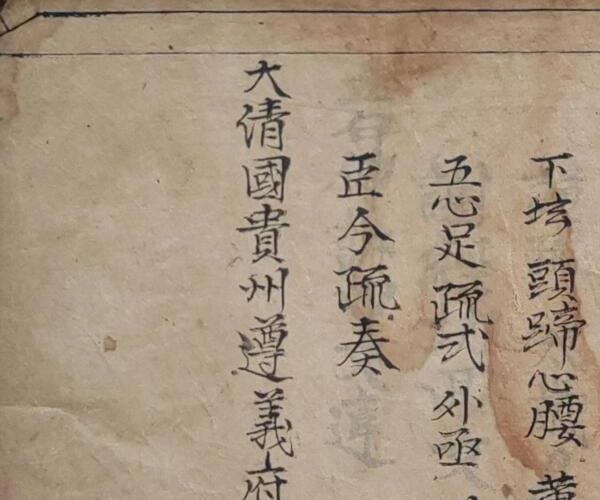 下坛頭蹄心腰
五心足疏式外亟
臣今疏奏
大清國貴州遵義府